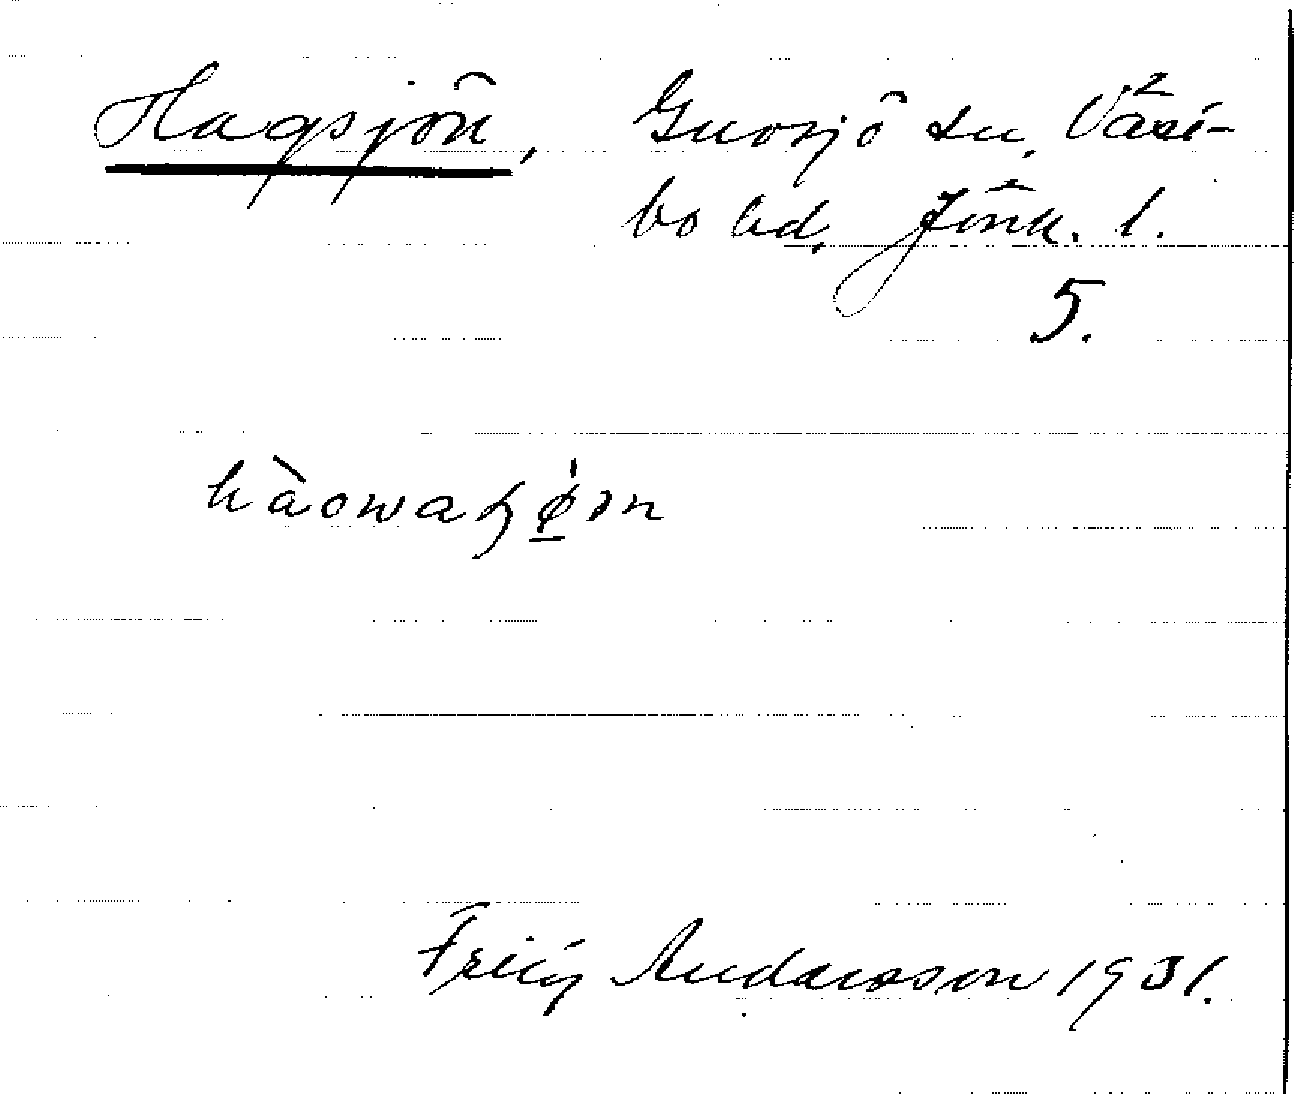 Hagsjön, Gnosjö sn, Väst-
bo hd, Jönk. l.
5.
hàowaɧø̲̍ən
Fritz Andersson 1931.